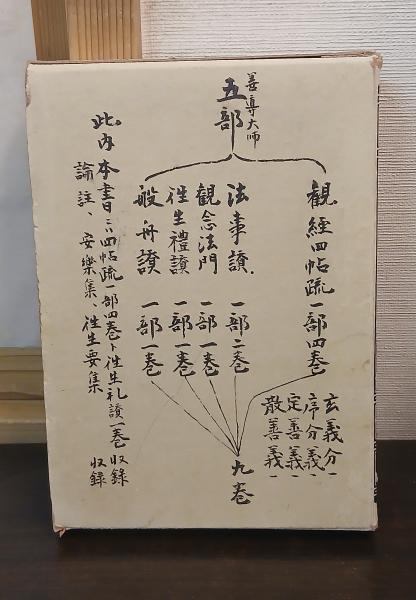 善導大師
五部
観経四帖疏一部四巻
玄義分一
序分義一
定善義一
散善義一
法事讃一部二巻
観念法門一部一巻
往生禮讃一部一巻
般舟讃一部一巻
九巻
此内本書ニハ四帖疏一部四巻ト往生礼讃一巻収録
論註、安樂集、往生要集収録